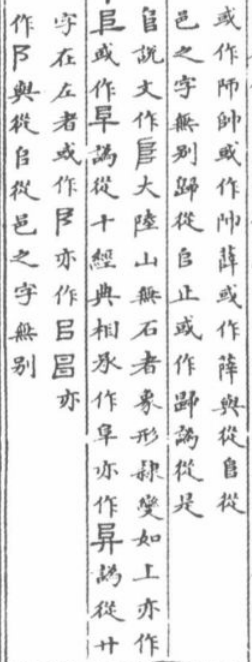 或作師帥或作帥薛或作薛與從𠂤從
邑之字無别歸從𠂤止或作歸譌從是
𨸏說文作大陸山無石者象形隸變如上亦作
或作阜譌從十經典相承作阜亦作譌從廾
字在左者或作亦作吕亦
作阝與從𠂤從邑之字無别